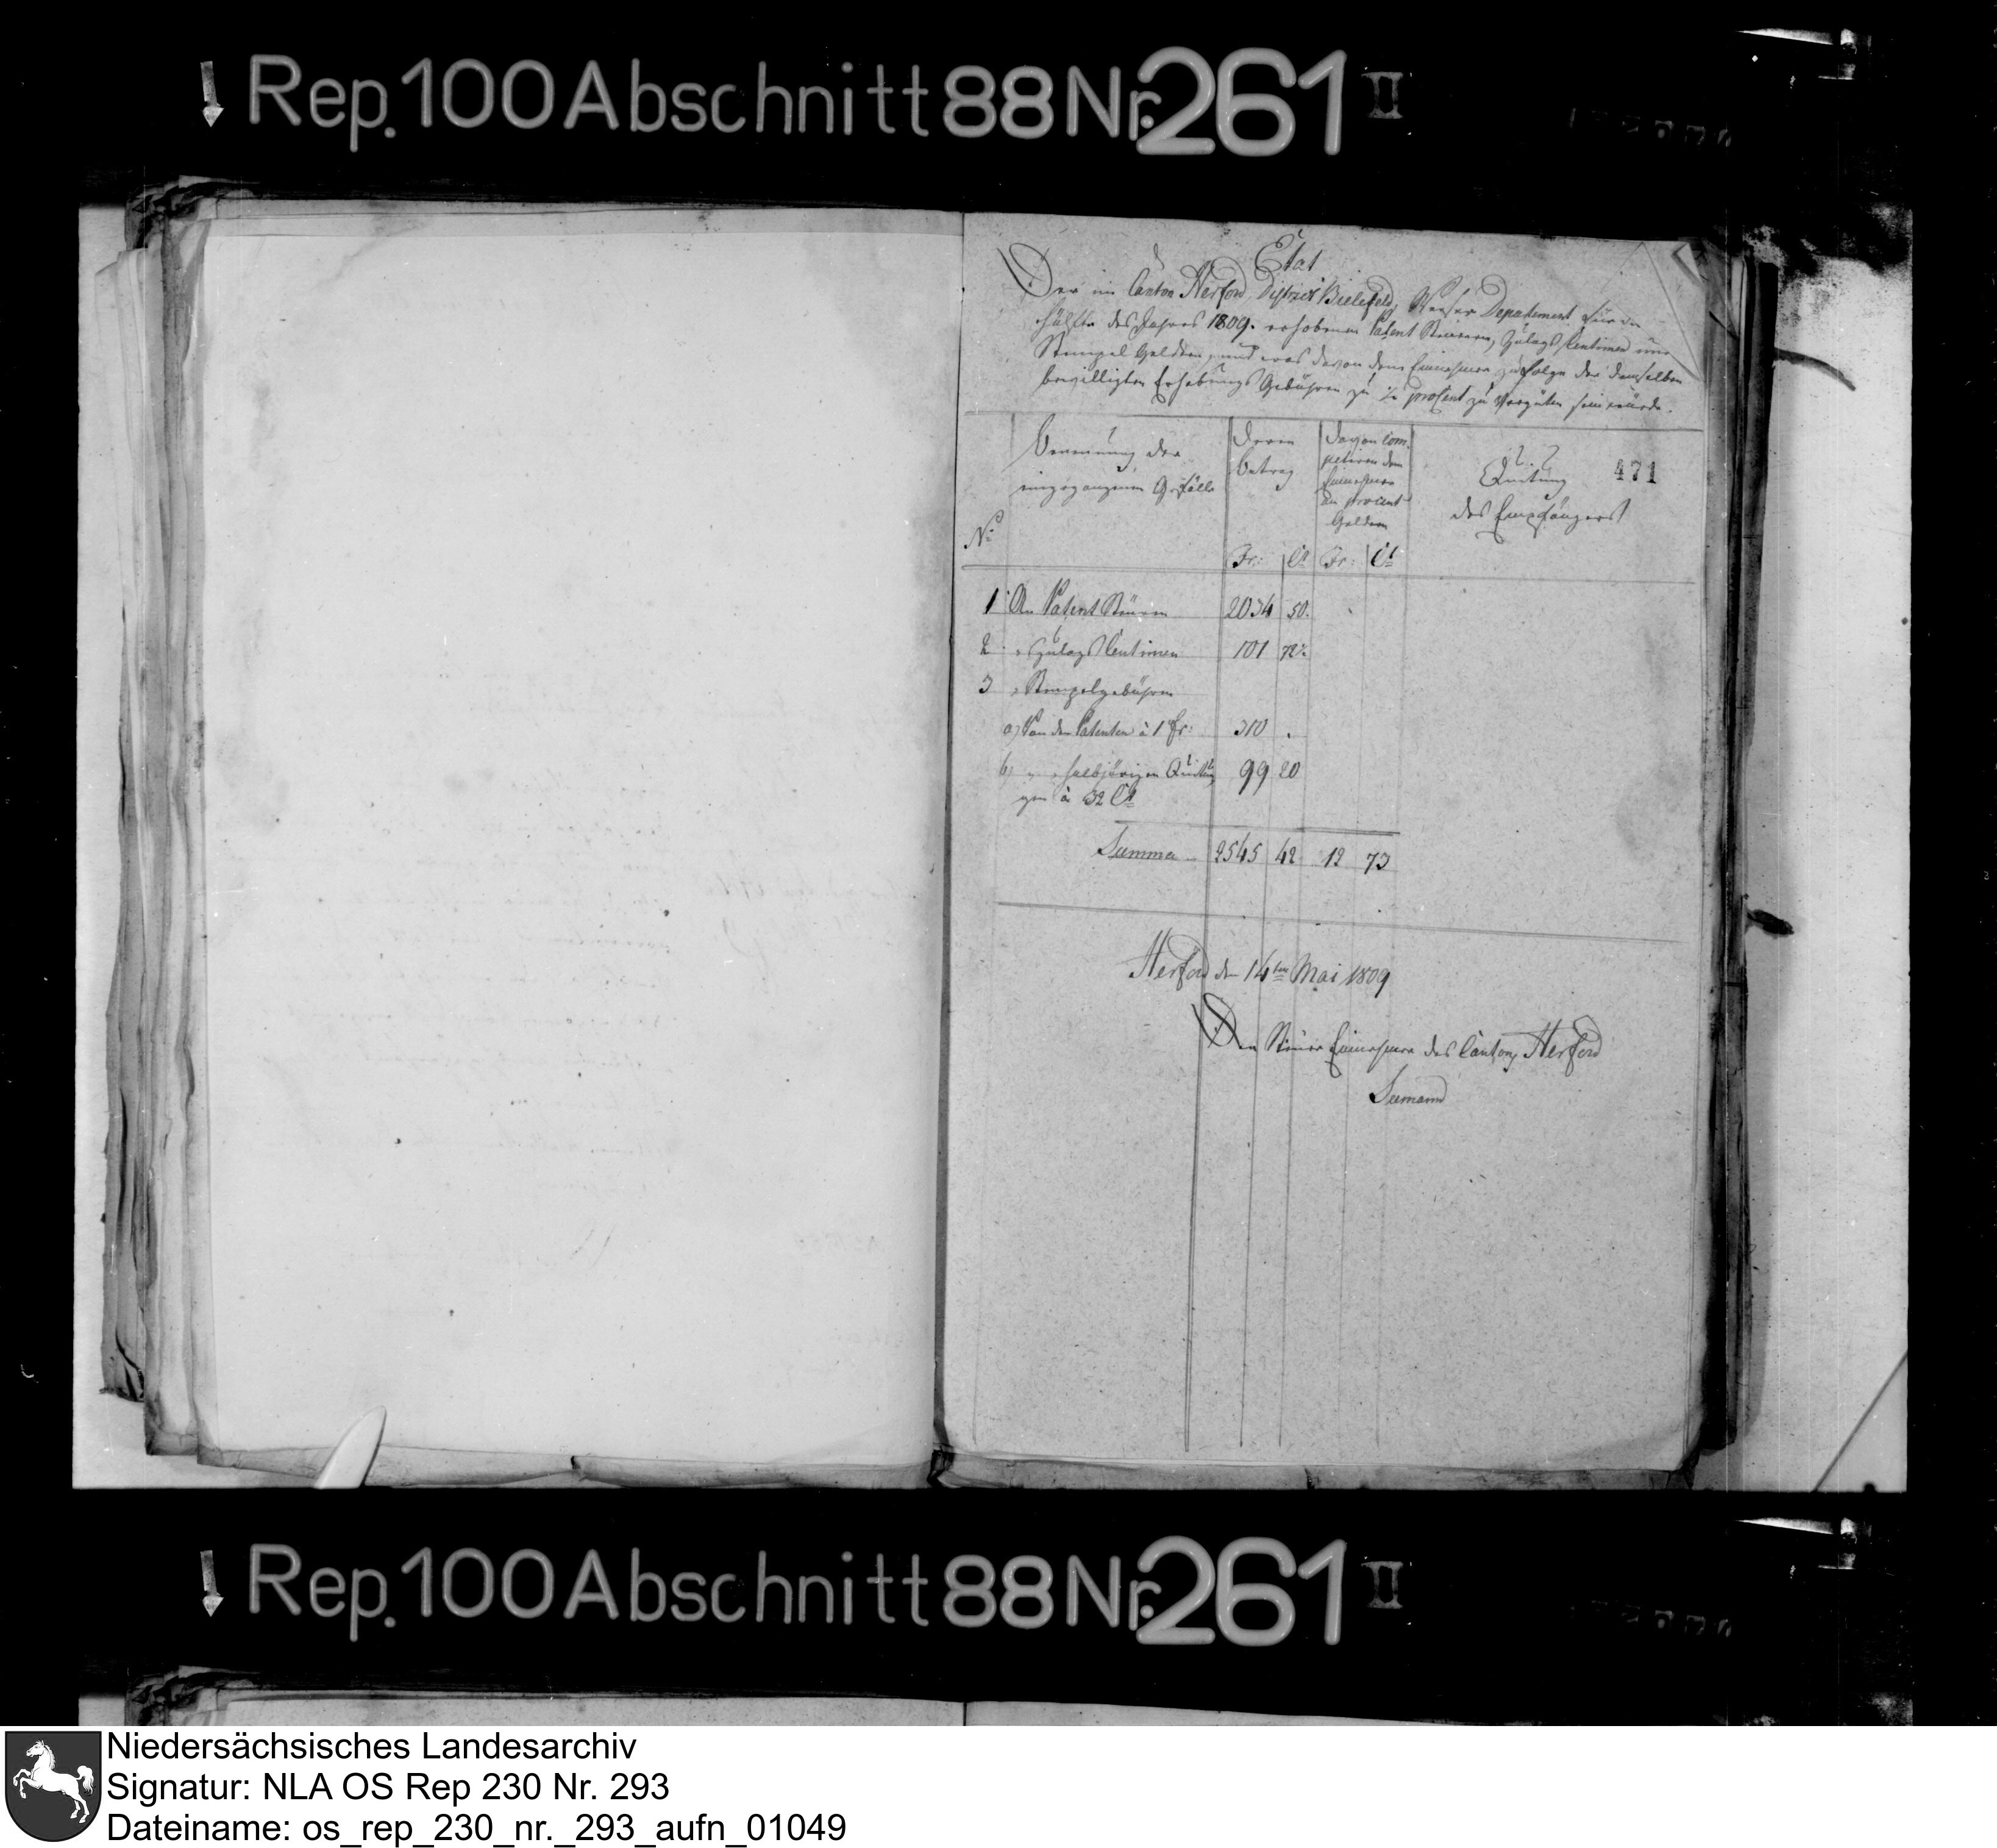 Rep. 100 Abschnitt 88 Nr. 261 II
Etat
Der im Canton Herford, District Bielefeld, Weser Departement für die
Hälfte des Jahres 1809. erhobenen Patent Steuern, Zulags Centimen und
Stempel Gelder, und was davon dem Einnehmer zu folge der demselben
bewilligten Erhebungs Gebühren zu ½ proCent zu Vergüten sein würde.
No
Benennung der
eingegangenen Gefälle
Deren
Betrag
Davon Com-
petiren dem
Einnehmer
an procent
Geldern
Quitung
des Empfängers
471
Fr: Ct Fr: Ct
1 An Patent Steuern 2034 50.
2 " Zulags Centimen 101 72.
3 " Stempelgebühren
a) Von den Patenten à 1 Fr: 310 .
b) " " halbjärigen Quitun
gen à 32 Ct 99 20
Summa 2545 42 12 73
Herford den 14ten Mai 1809
Der Steuer Einnehmer des Cantons Herford
Seemann
Rep. 100 Abschnitt 88 Nr. 261 II
Niedersächsisches Landesarchiv
Signatur: NLA OS Rep 230 Nr. 293
Dateiname: os_rep_230_nr._293_aufn_01049